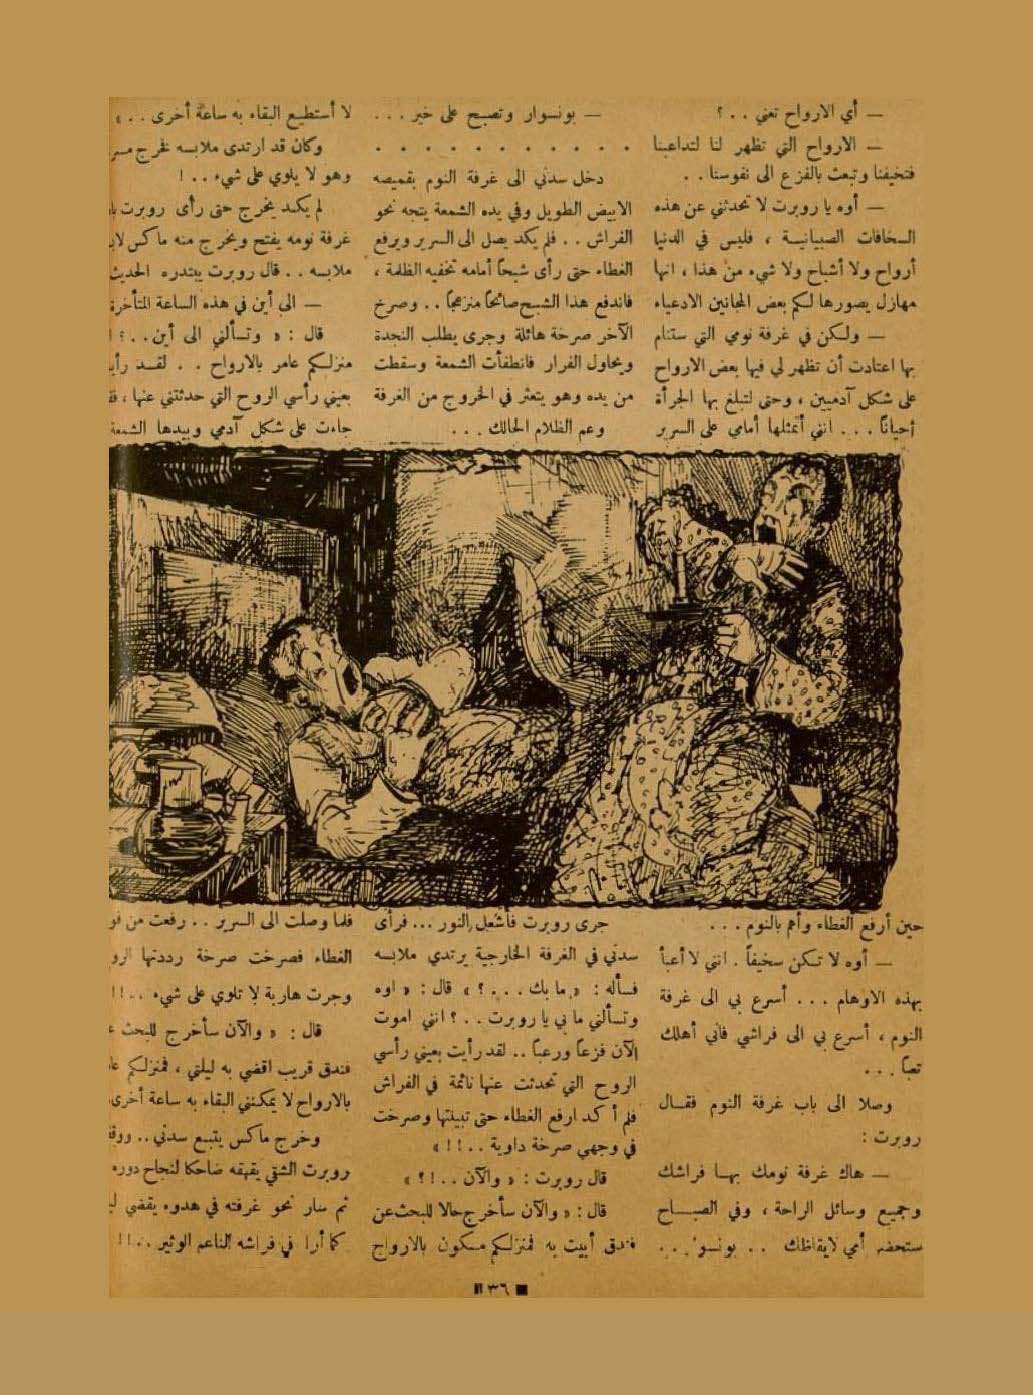 — أي الارواح تعني . . ؟
— الارواح التي تظهر لنا لتداعبنا
فتخيفنا وتبعث بالفزع الى نفوسنا . .
— أوه يا روبرت لا تحدثني عن هذه
السخافات الصبيانية ، فليس في الدنيا
أرواح ولا أشباح ولا شيء من هذا ، انها
مهازل يصورها لكم بعض المجانين الادعياء
— ولكن في غرفة نومي التي ستنام
بها اعتادت أن تظهر لي فيها بعض الارواح
على شكل آدميين ، وحتى لتبلغ بها الجرأة
أحياناً . . . انني أتمثلها أمامي على السرير
حين أرفع الغطاء وأهم بالنوم . . .
— أوه لا تكن سخيفاً . انني لا أعبأ
بهذه الاوهام . . . أسرع بي الى غرفة
النوم ، أسرع بي الى فراشي فاني أهلك
تعباً . . .
وصلا الى باب غرفة النوم فقال
روبرت :
— هاك غرفة نومك بها فراشك
وجميع وسائل الراحة ، وفي الصباح
ستحضر أمي لايقاظك . . بونسو . . .
— بونسوار وتصبح على خير . . .
. . . . . . . . . . .
دخل سدني الى غرفة النوم بقميصه
الابيض الطويل وفي يده الشمعة يتجه نحو
الفراش . . فلم يكد يصل الى السرير ويرفع
الغطاء حتى رأى شبحاً أمامه تخفيه الظلمة ،
فاندفع هذا الشبح صائحاً منزعجاً . . وصرخ
الآخر صرخة هائلة وجرى يطلب النجدة
ويحاول الفرار فانطفأت الشمعة وسقطت
من يده وهو يتعثر في الخروج من الغرفة
وعم الظلام الحالك . . .
جرى روبرت فأشعل النور ... فرأى
سدني في الغرفة الخارجية يرتدي ملابسه
فسأله : « ما بك . . . ؟ » قال : « اوه
وتسألني ما بي يا روبرت . . ؟ انني اموت
الآن فزعاً ورعباً . . لقد رأيت بعيني رأسي
الروح التي تحدثت عنها نائمة في الفراش
فلم أكد ارفع الغطاء حتى تبينتها وصرخت
في وجهي صرخة داوية . . !! »
قال روبرت : « والآن . . !؟ »
قال : « والآن سأخرج حالا للبحث عن
فندق أبيت به فمنزلكم مسكون بالارواح
لا أستطيع البقاء به ساعة أخرى . . »
وكان قد ارتدى ملابسه فخرج
وهو لا يلوي على شيء . . !
لم يكد يخرج حتى رأى روبرت
غرفة نومه يفتح ويخرج منه ماكس
ملابسه . . قال روبرت يبتدره الحديث
— الى أين في هذه الساعة المتأخرة
قال : « وتسألني الى أين . . ؟ !
منزلكم عامر بالارواح . . لقد
بعيني رأسي الروح التي حدثتني عنها ،
جاءت على شكل آدمي وبيدها الشمعة
فلما وصلت الى السرير . . رفعت من
الغطاء فصرخت صرخة رددتها
وجرت هاربة لا تلوي على شيء . . !!
قال : « والآن سأخرج للبحث
فندق قريب اقضي به ليلتي ، فمنزلكم
بالارواح لا يمكنني البقاء به ساعة أخرى
وخرج ماكس يتبع سدني . .
روبرت الشقي يقهقه ضاحكا لنجاح دوره
ثم سار نحو غرفته في هدوء يقضي
كما أراد في فراشه الناعم الوثير . . !!
٣٦